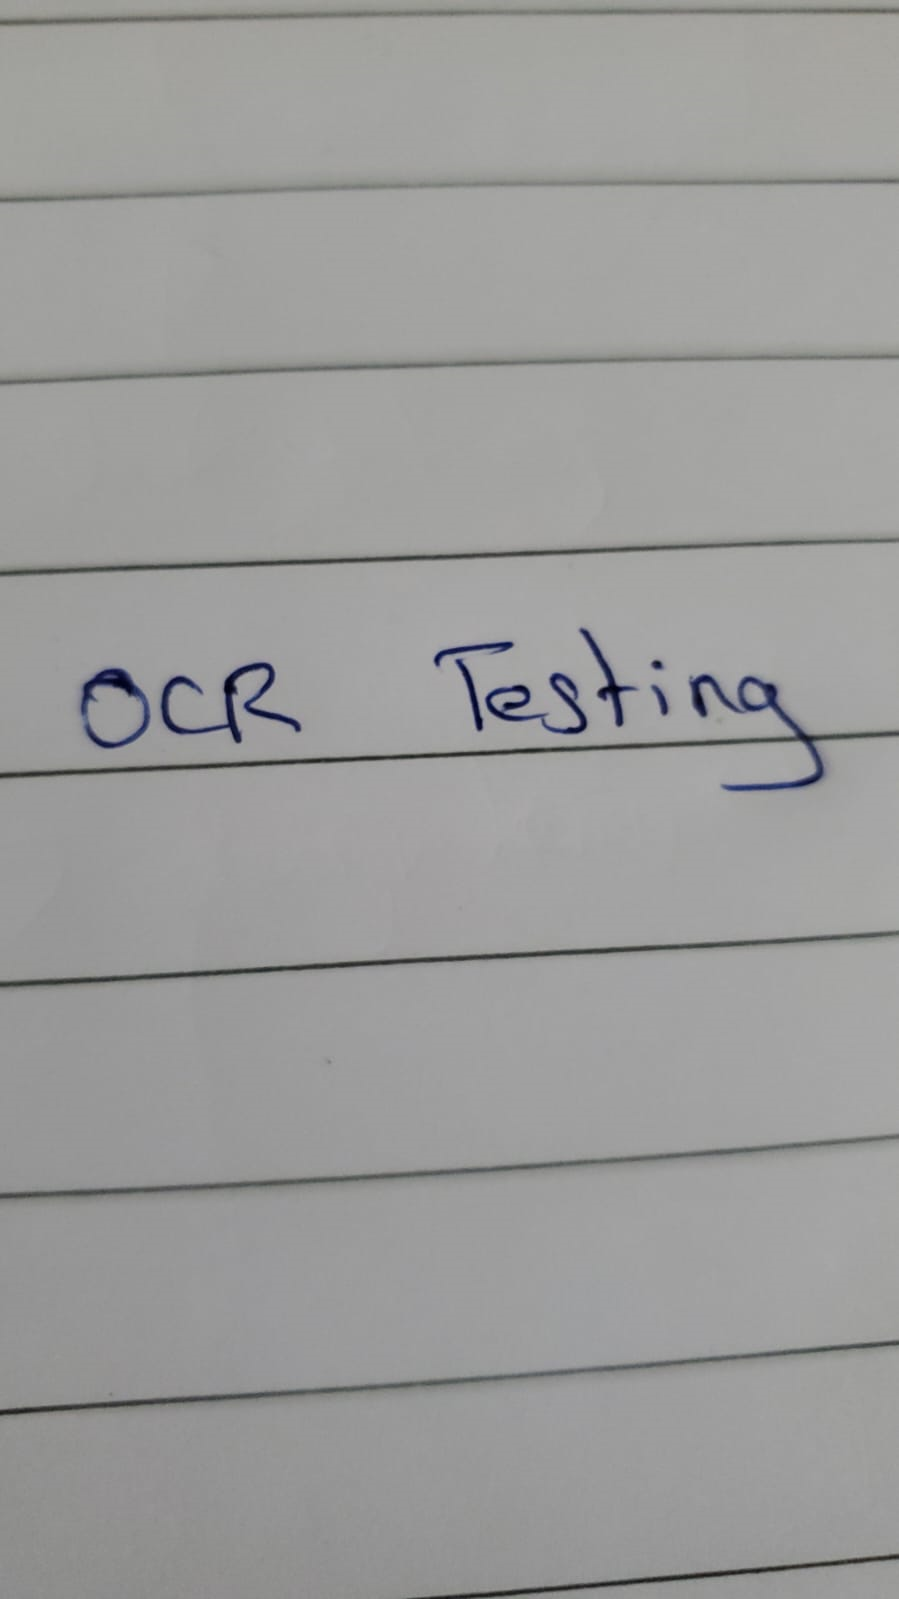 OCR Testing